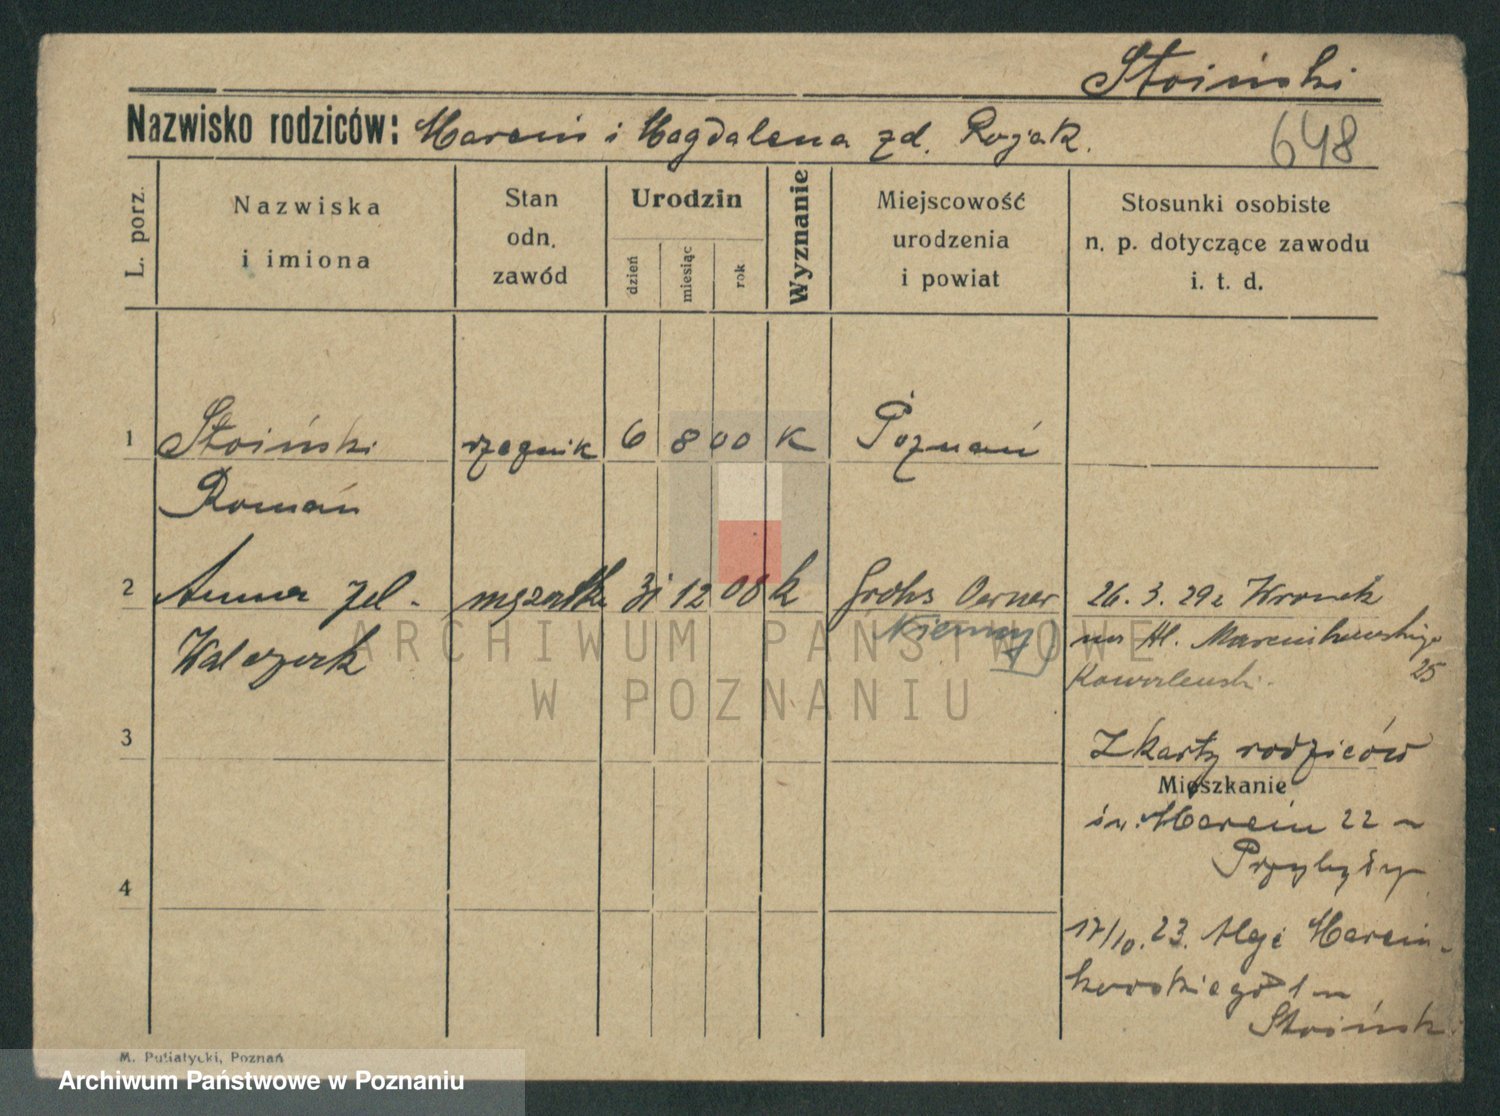 Stoiński
Nazwisko rodziców: Marcin i Magdalena zd. Rojak.
648
L. porz.
Nazwiska
i imiona
Stan
odn.
zawód
Urodzin
dzień
miesiąc
rok
Wyznanie
Miejscowość
urodzenia
i powiat
Stosunki osobiste
n. p. dotyczące zawodu
i. t. d.
1 Stoiński rzeźnik 6 8 00 K Poznań
Roman
2 Anna zd. mężatka 31 12 08 k
Niemcy
Walczak
26. 3. 29 z Wronek
na Al. Marcinkowskiego
25
3
Z karty rodziców
Mieszkanie
św. Marcin 22
Przybyły
4
17/10. 23. Aleje Marcin-
kowskiego
Stoiński
ARCHIWUM PAŃSTWOWE
W POZNANIU
M. Putiatycki, Poznań
Archiwum Państwowe w Poznaniu